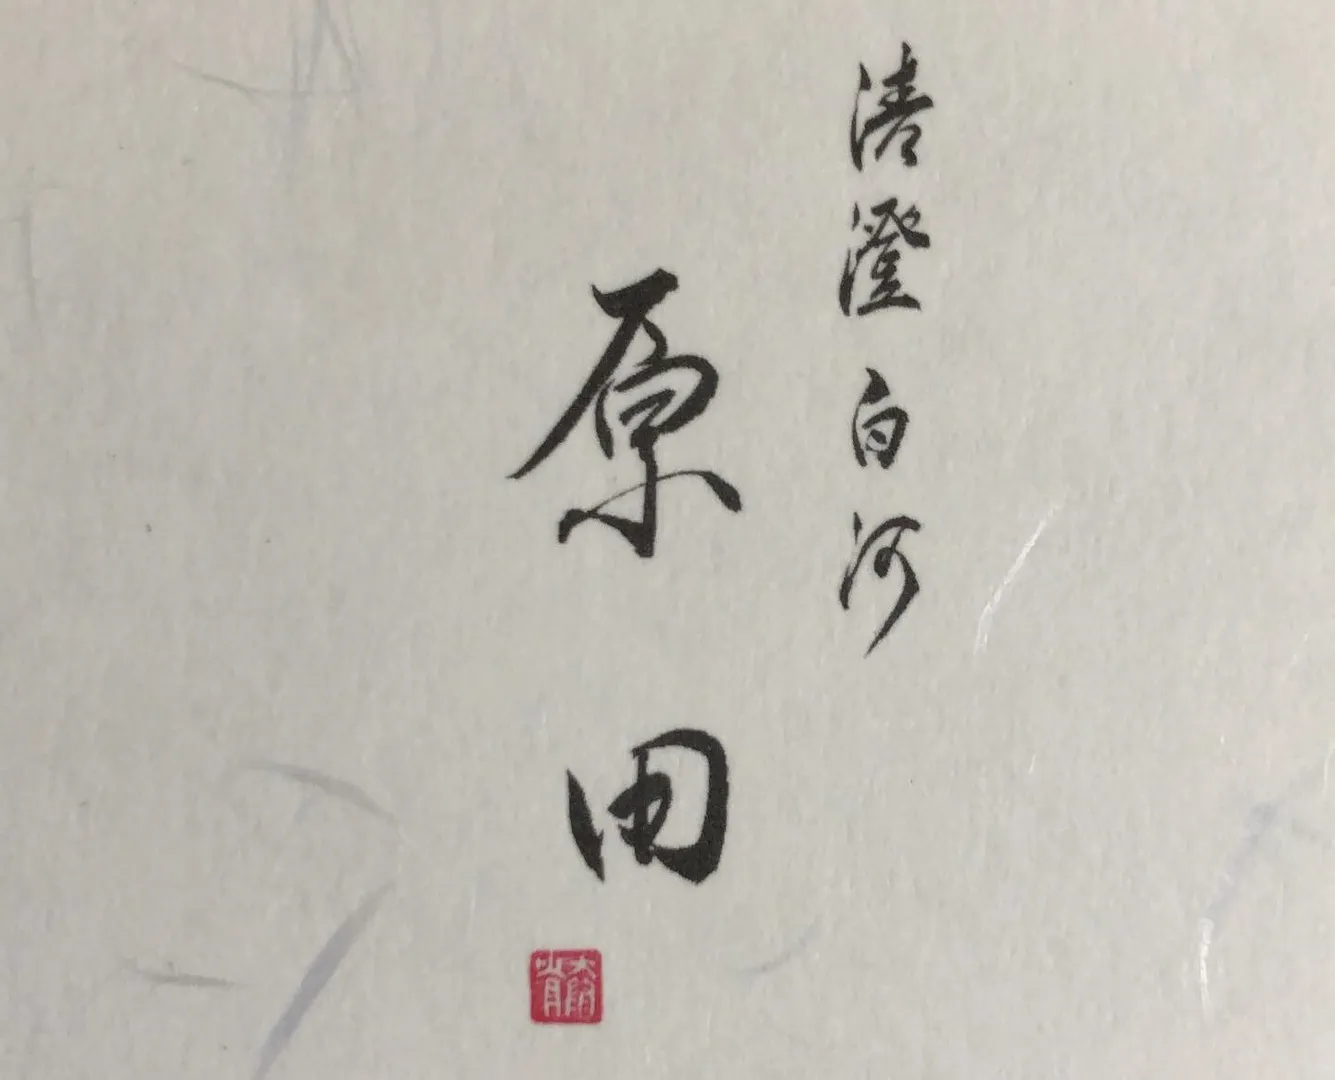 清澄白河
原田